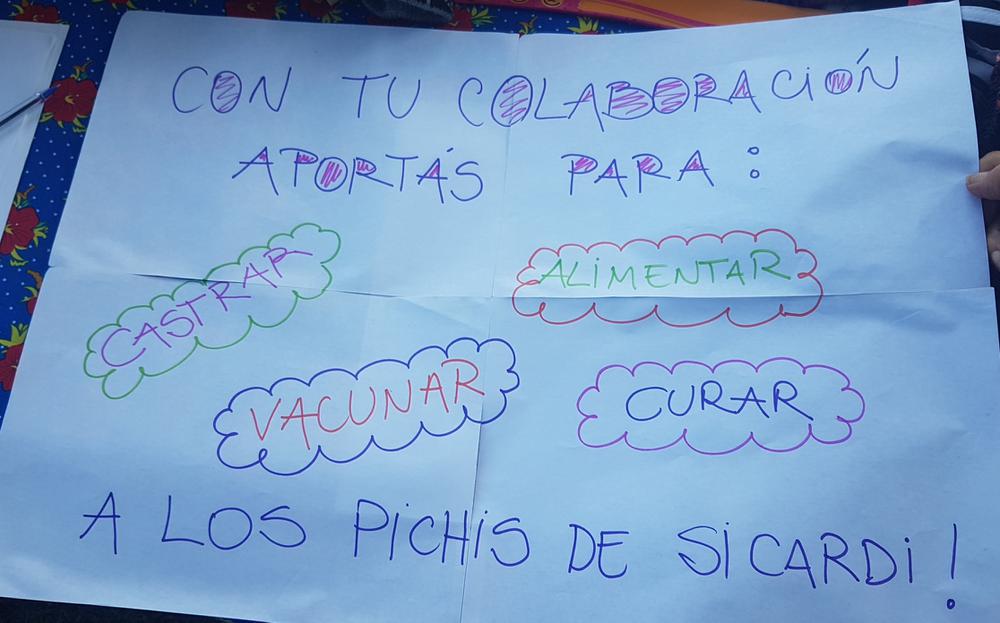 CON TU COLABORACIÓN
APORTÁS PARA:
CASTRAR
ALIMENTAR
VACUNAR
CURAR
A LOS PICHIS DE SICARDI!